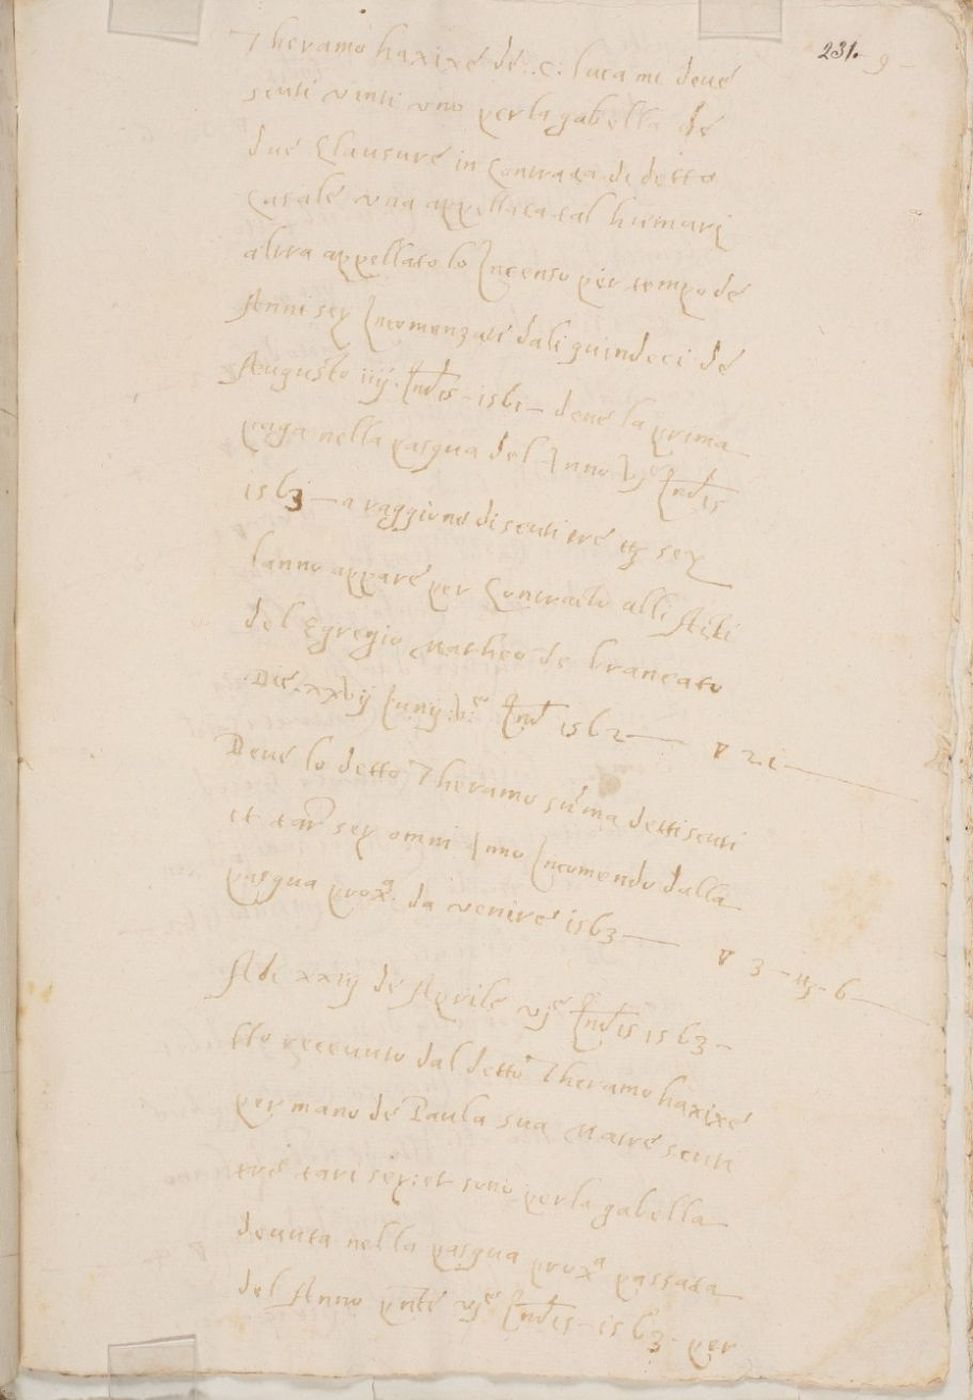 231. 9
Theramo haxixé dé .C. luca mi deué
scuti vinti uno per la gabella dé
dué Clausuré in Contrata di detto
Casalé una appellata tal humari
altra appellato lo Incenso per tempo dé
Anni sex Incomenzati dali quindeci dé
Augusto iiij. Indis - 1561 - deué la prima
paga nella pasqua del Anno Vj.e Indis
1563 - a raggioné di scuti tré tt sex
lanno apparé per Contracto alli Acti
del Egregio Matheo de brancato
Dié. xxvij Iunij. v.e Ind 1562 — 21 —
Deué lo detto Theramo summa detti scuti
et tar sex omni Anno Incomendo dalla
pasqua prox.a da veniré 1563 — 3 - tt - 6 —
A di xxiij dé Aprilé vj.e Indis 1563 -
Ho receuuto dal detto Theramo haxixé
per mano dé Paula sua Matré scuti
tré tari sex: et sono per la gabella
deuuta nella pasqua prox.a passata
del Anno pnté vj.e Indis - 1563 - per